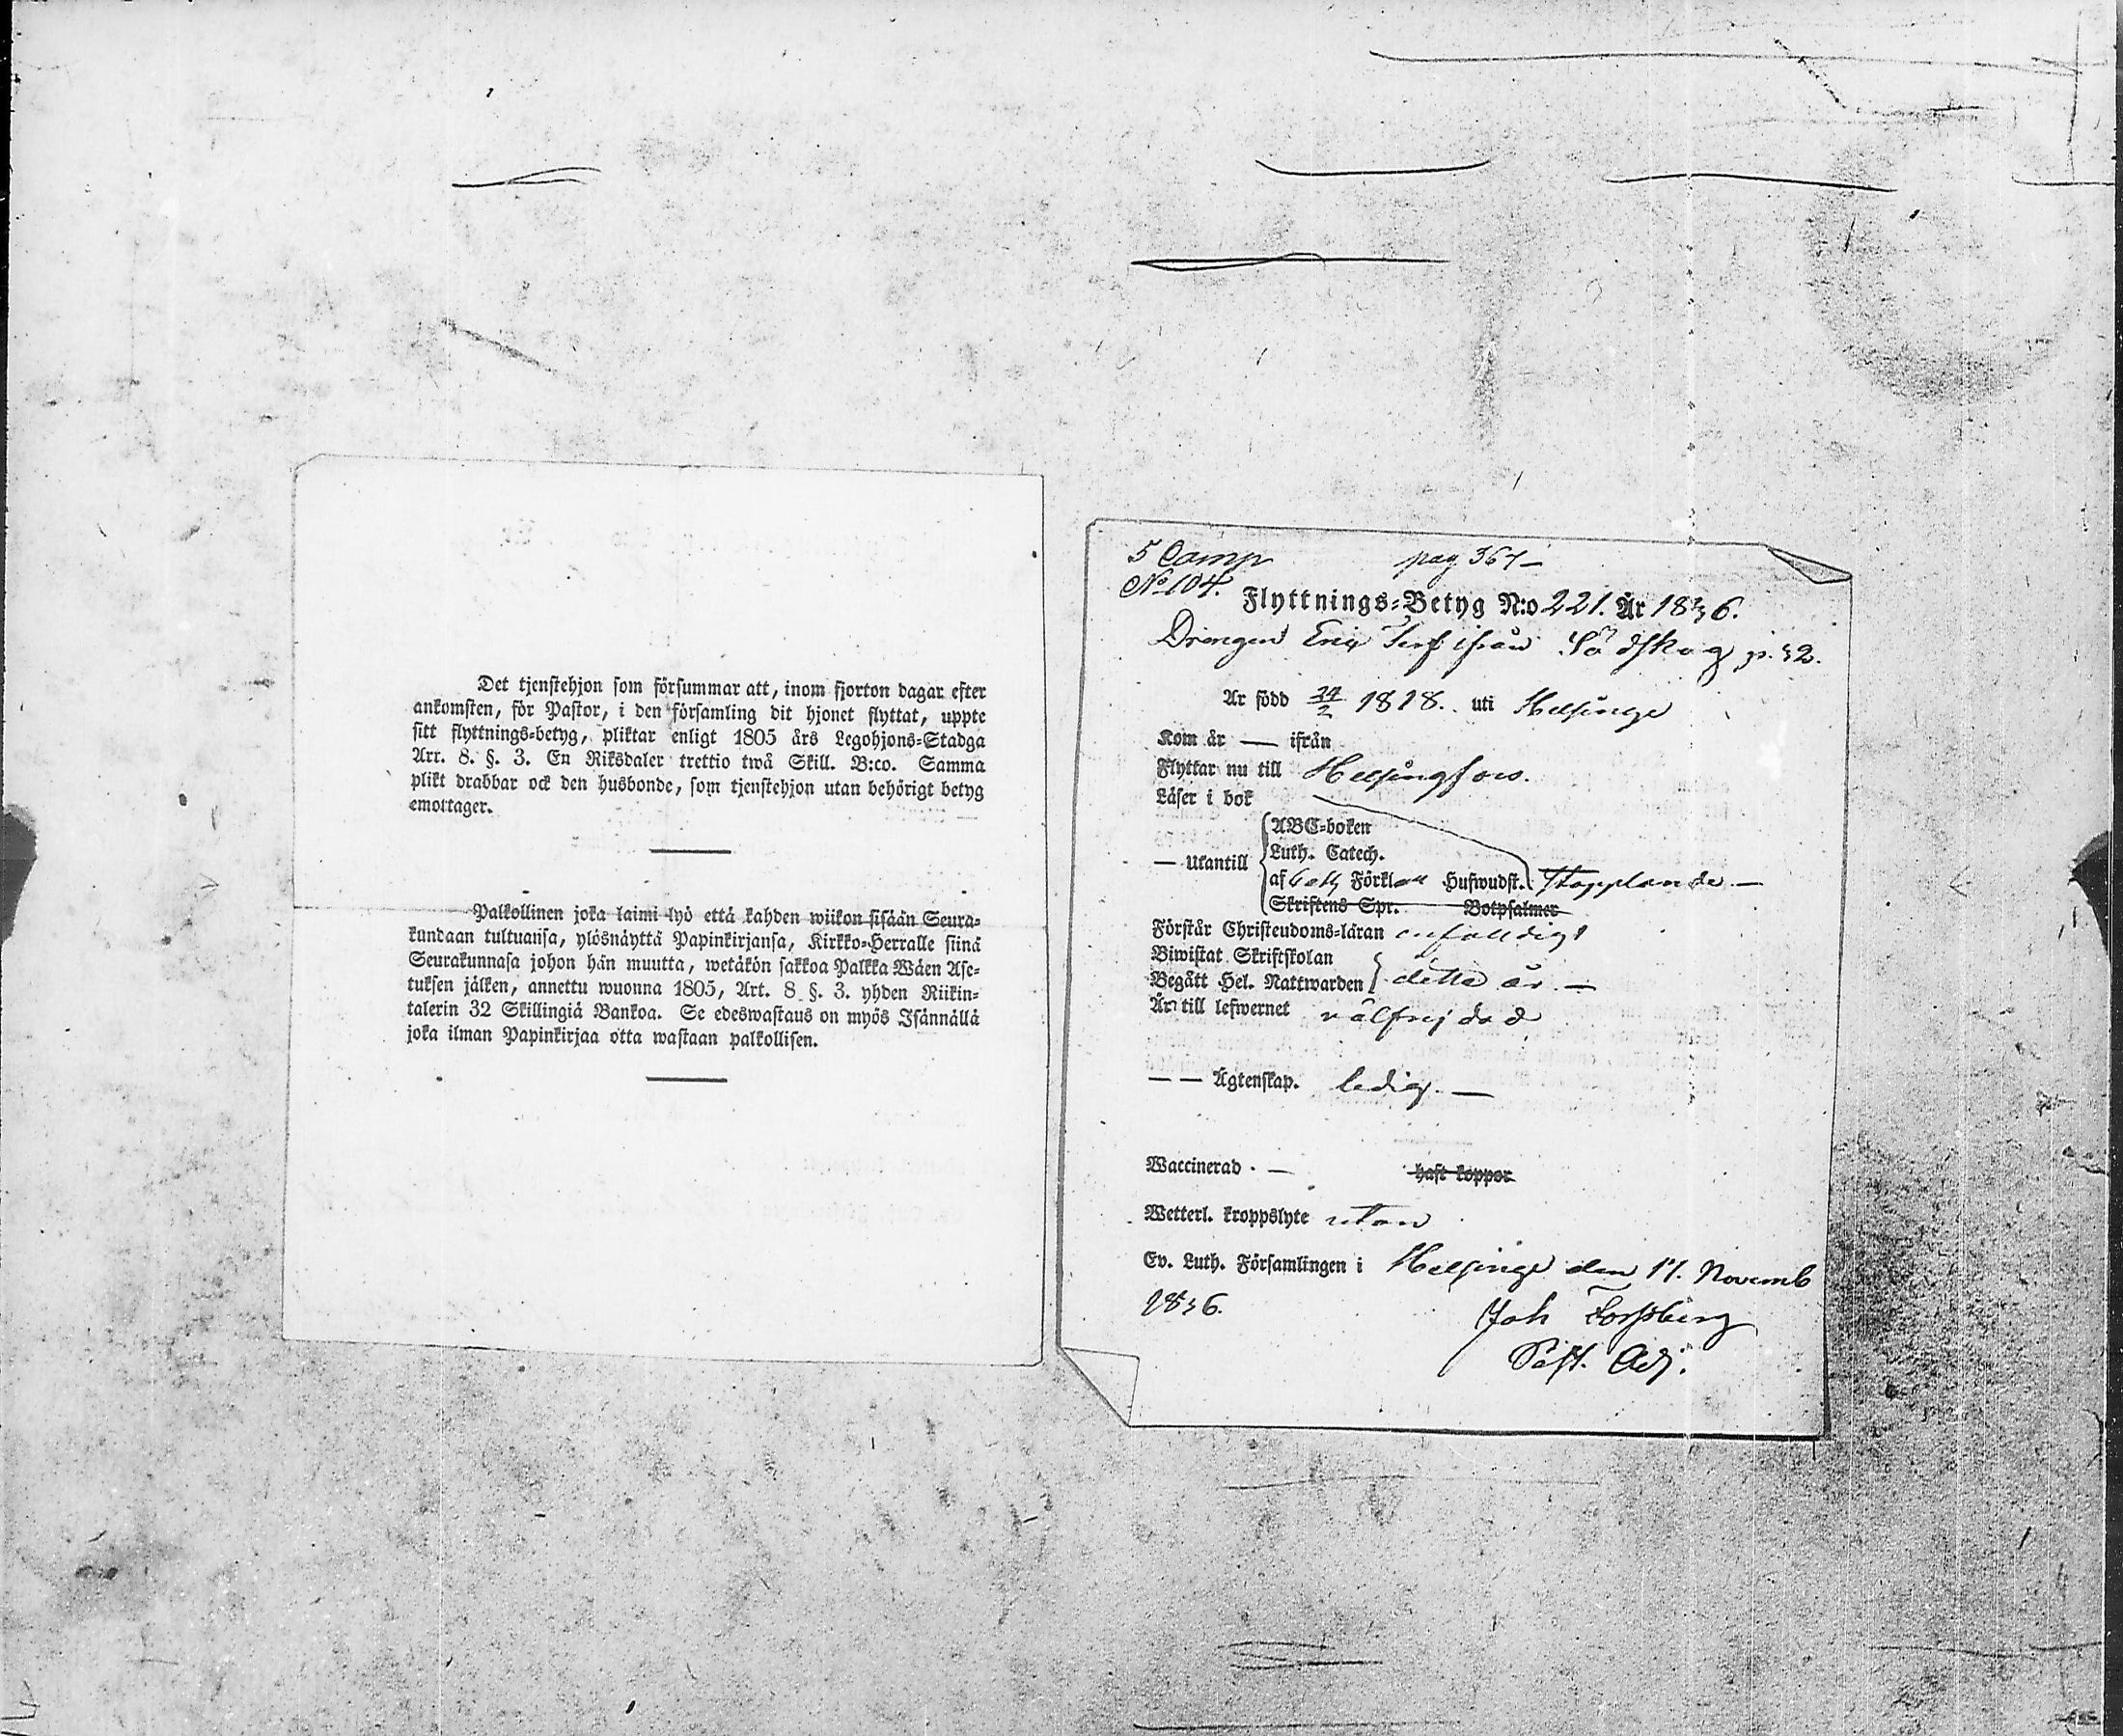 Det tjenstehjon som försummar att, inom fjorton dagar efter
ankomsten, för Pastor, i den församling dit hjonet flyttat, uppte
sitt flyttnings-betyg, pliktar enligt 1805 års Legohjons-Stadga
Arr. 8. §. 3. En Riksdaler trettio twå Skill. B:co. Samma
plikt drabbar ock den husbonde, som tjenstehjon utan behörigt betyg
emottager.
Palkollinen joka laimi lyö että kahden wiikon sisään Seura-
kundaan tultuansa, ylösnäyttä Papinkirjansa, Kirkko-Herralle siinä
Seurakunnasa johon hän muutta, wetäkön sakkoa Palkka Wäen Ase-
tuksen jälken, annettu wuonna 1805, Art. 8 §. 3. yhden Riikin-
talerin 32 Skillingiä Bankoa. Se edeswastaus on myös Isännällä
joka ilman Papinkirjaa otta wastaan palkollisen.
5 Camp pag 367
No 104.
Flyttnings-Betyg N:o 221. År 1836.
Drengen Eric ifrån p. 32.
Är född 24/2 1818. uti Helsinge
Kom år — ifrån
Flyttar nu till Helsingfors.
Läser i bok
ABC-boken
Luth. Catech.
— utantill
af Förklar Hufwudst. Stapplande —
Skriftens Spr. Botpsalmer
Förstår Christendoms-läran enfaldigt
Biwistat Skriftskolan
Begått Hel. Nattwarden detta år. —
Är till lefwernet välfrejdad
— — Ägtenskap. ledig. —
Waccinerad. — haft koppor
Wetterl. kroppslyte utan
Ev. Luth. Församlingen i Helsinge den 17. Novemb
1836.
Joh Forssberg
Past. Adj.